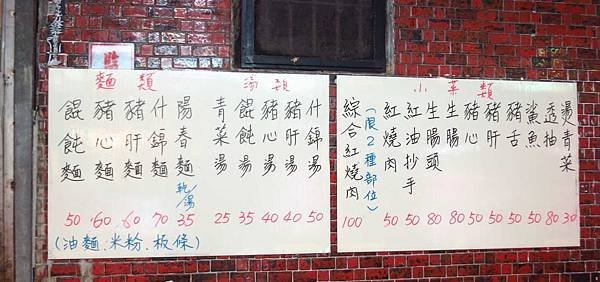 麵類
餛飩麵 50
豬心麵 60
豬肝麵 60
什錦麵 70
陽春麵 乾/湯 35
(油麵、米粉、板條)
湯類
青菜湯 25
餛飩湯 35
豬心湯 40
豬肝湯 40
什錦湯 50
小菜類
綜合紅燒肉 100
(限2種部位)
紅燒肉 50
紅油抄手 50
生腸頭 80
生腸 80
豬心 50
豬肝 50
豬舌 50
鯊魚 50
透抽 80
燙青菜 30